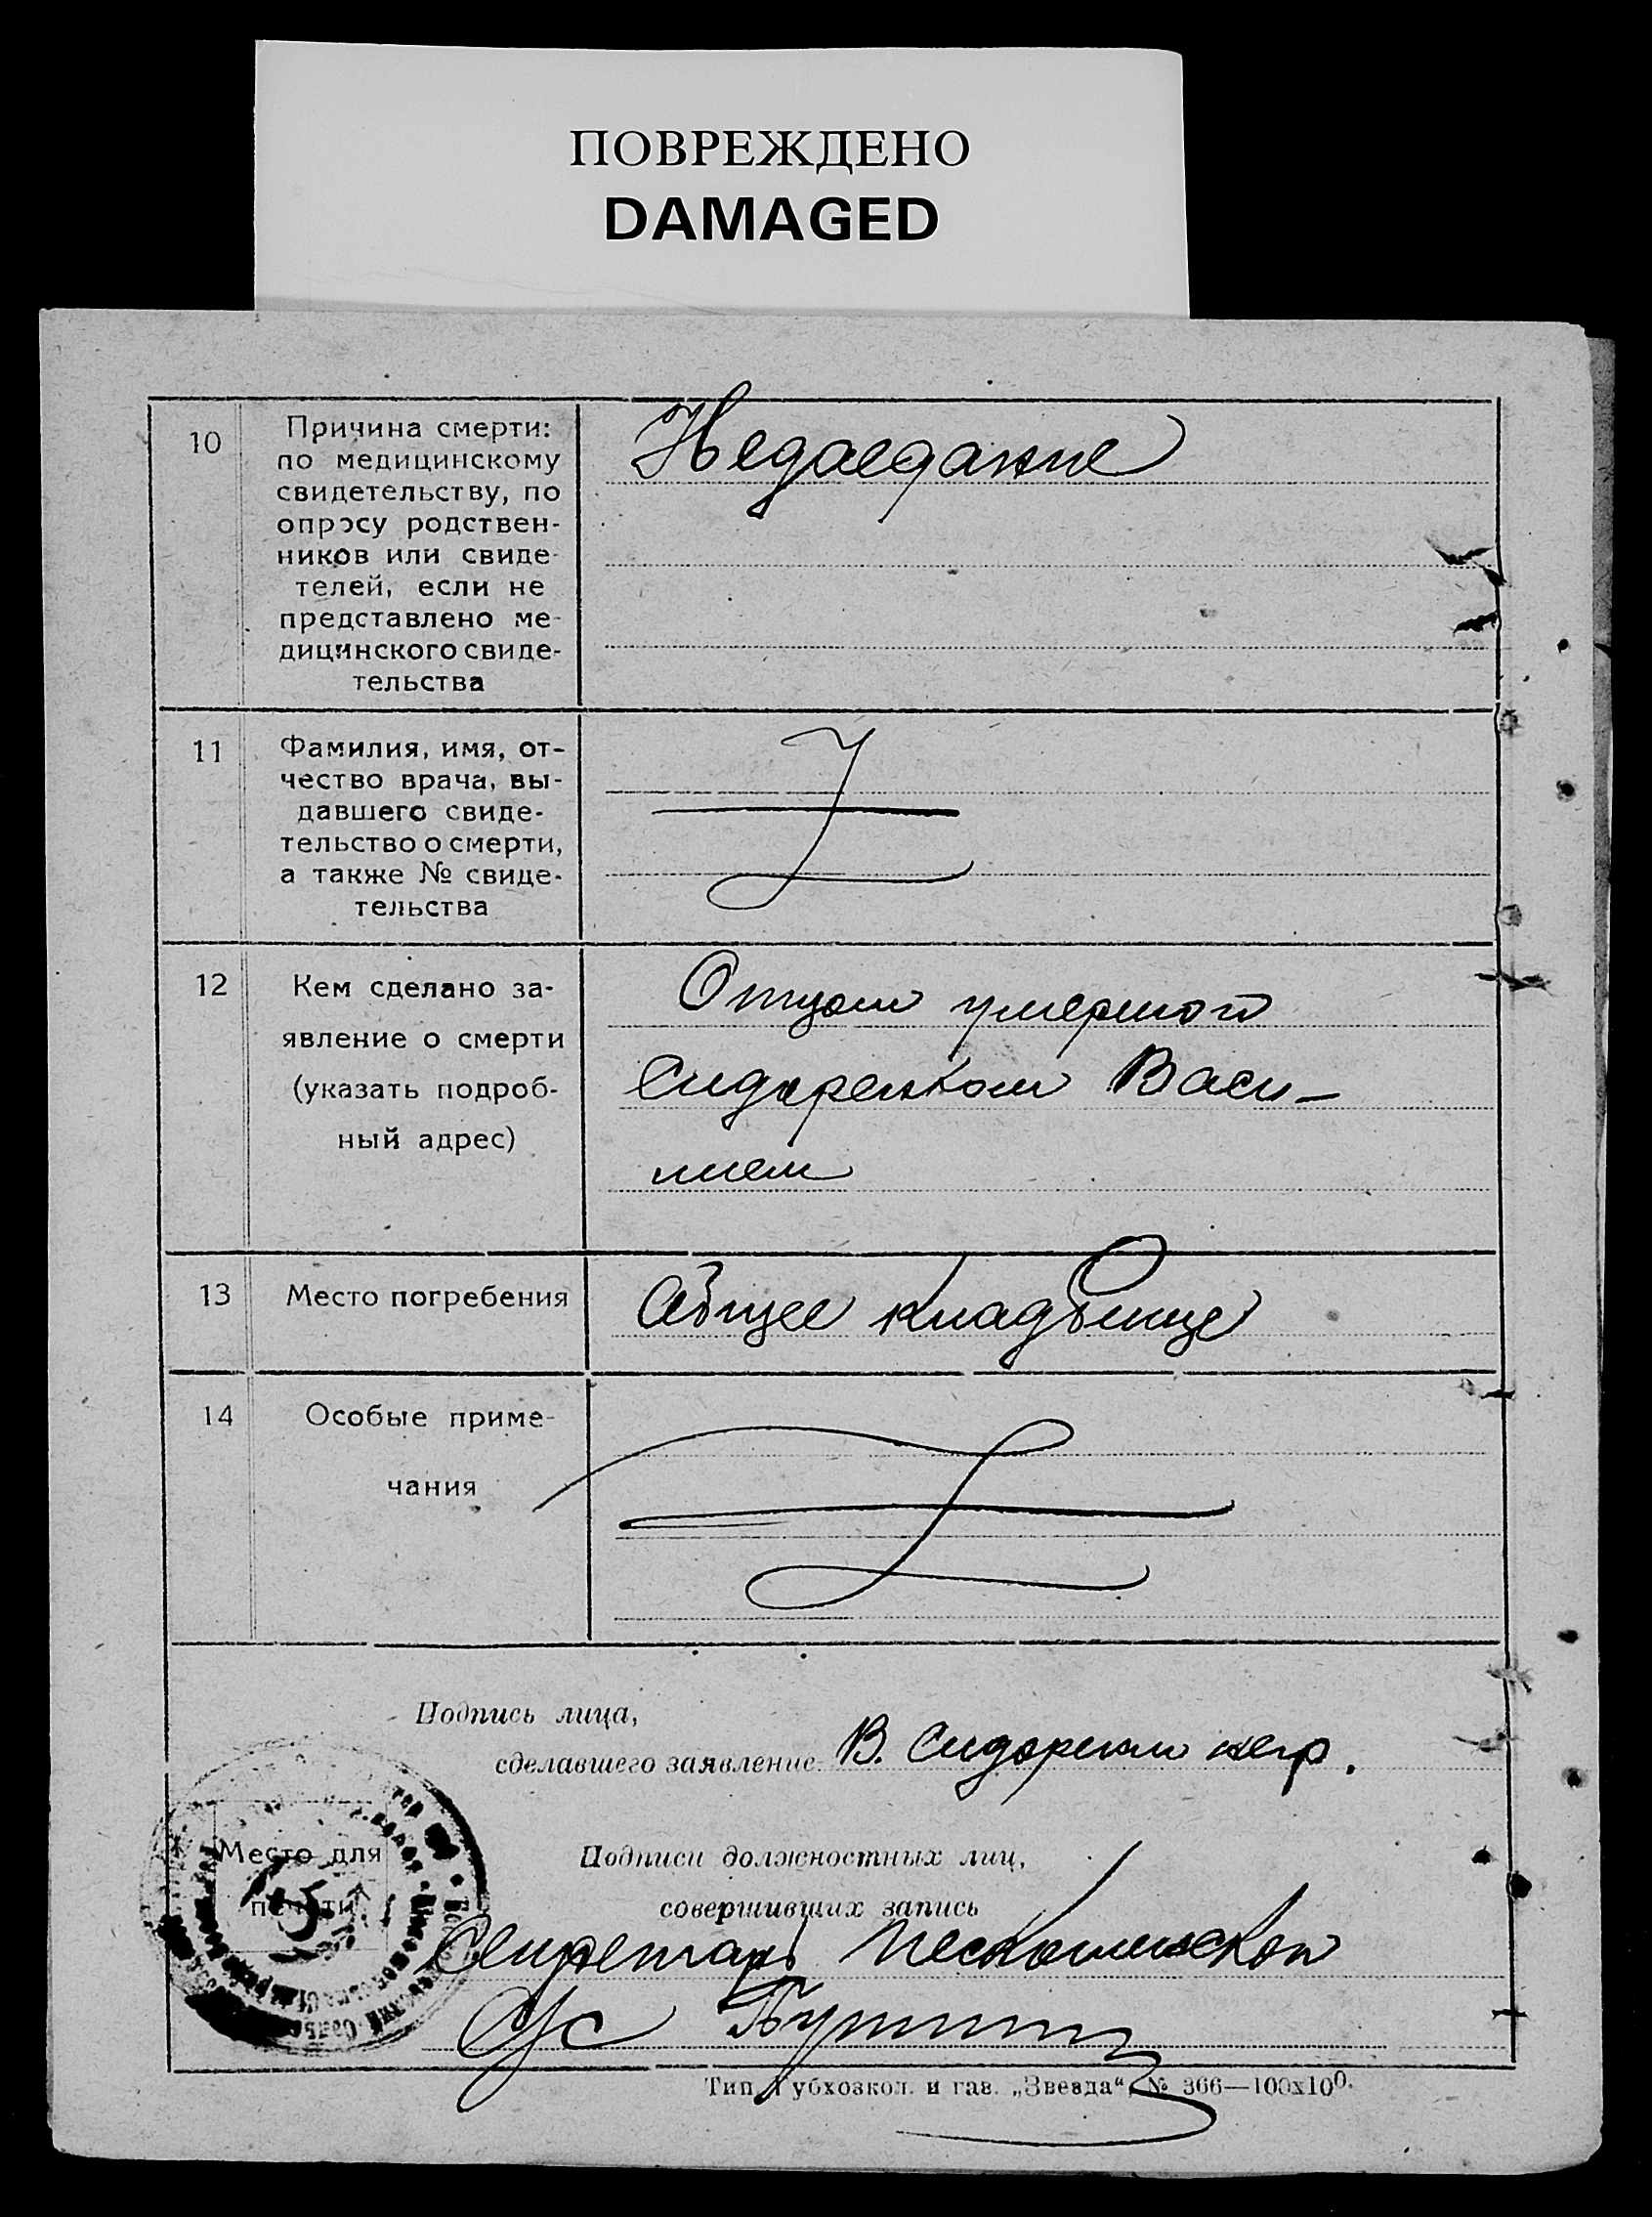 ПОВРЕЖДЕНО
DAMAGED
10
Причина смерти:
по медицинскому
свидетельству, по
опросу родствен-
ников или свиде-
телей, если не
представлено ме-
дицинского свиде-
тельства
Недаедание
11
Фамилия, имя, от-
чество врача, вы-
давшего свиде-
тельство о смерти,
а также № свиде-
тельства
12
Кем сделано за-
явление о смерти
(указать подроб-
ный адрес)
Отцом умершого
Сидоренком Васи-
лием
13
Место погребения
Общее кладбище
14
Особые приме-
чания
Подпись лица,
сделавшего заявление В. Сидоренко негр.
Место для
печати
Подписи должностных лиц,
совершивших запись
Секретарь
с/с
Тип. Губхозкол. и газ. „Звезда“, № 366—100х100.